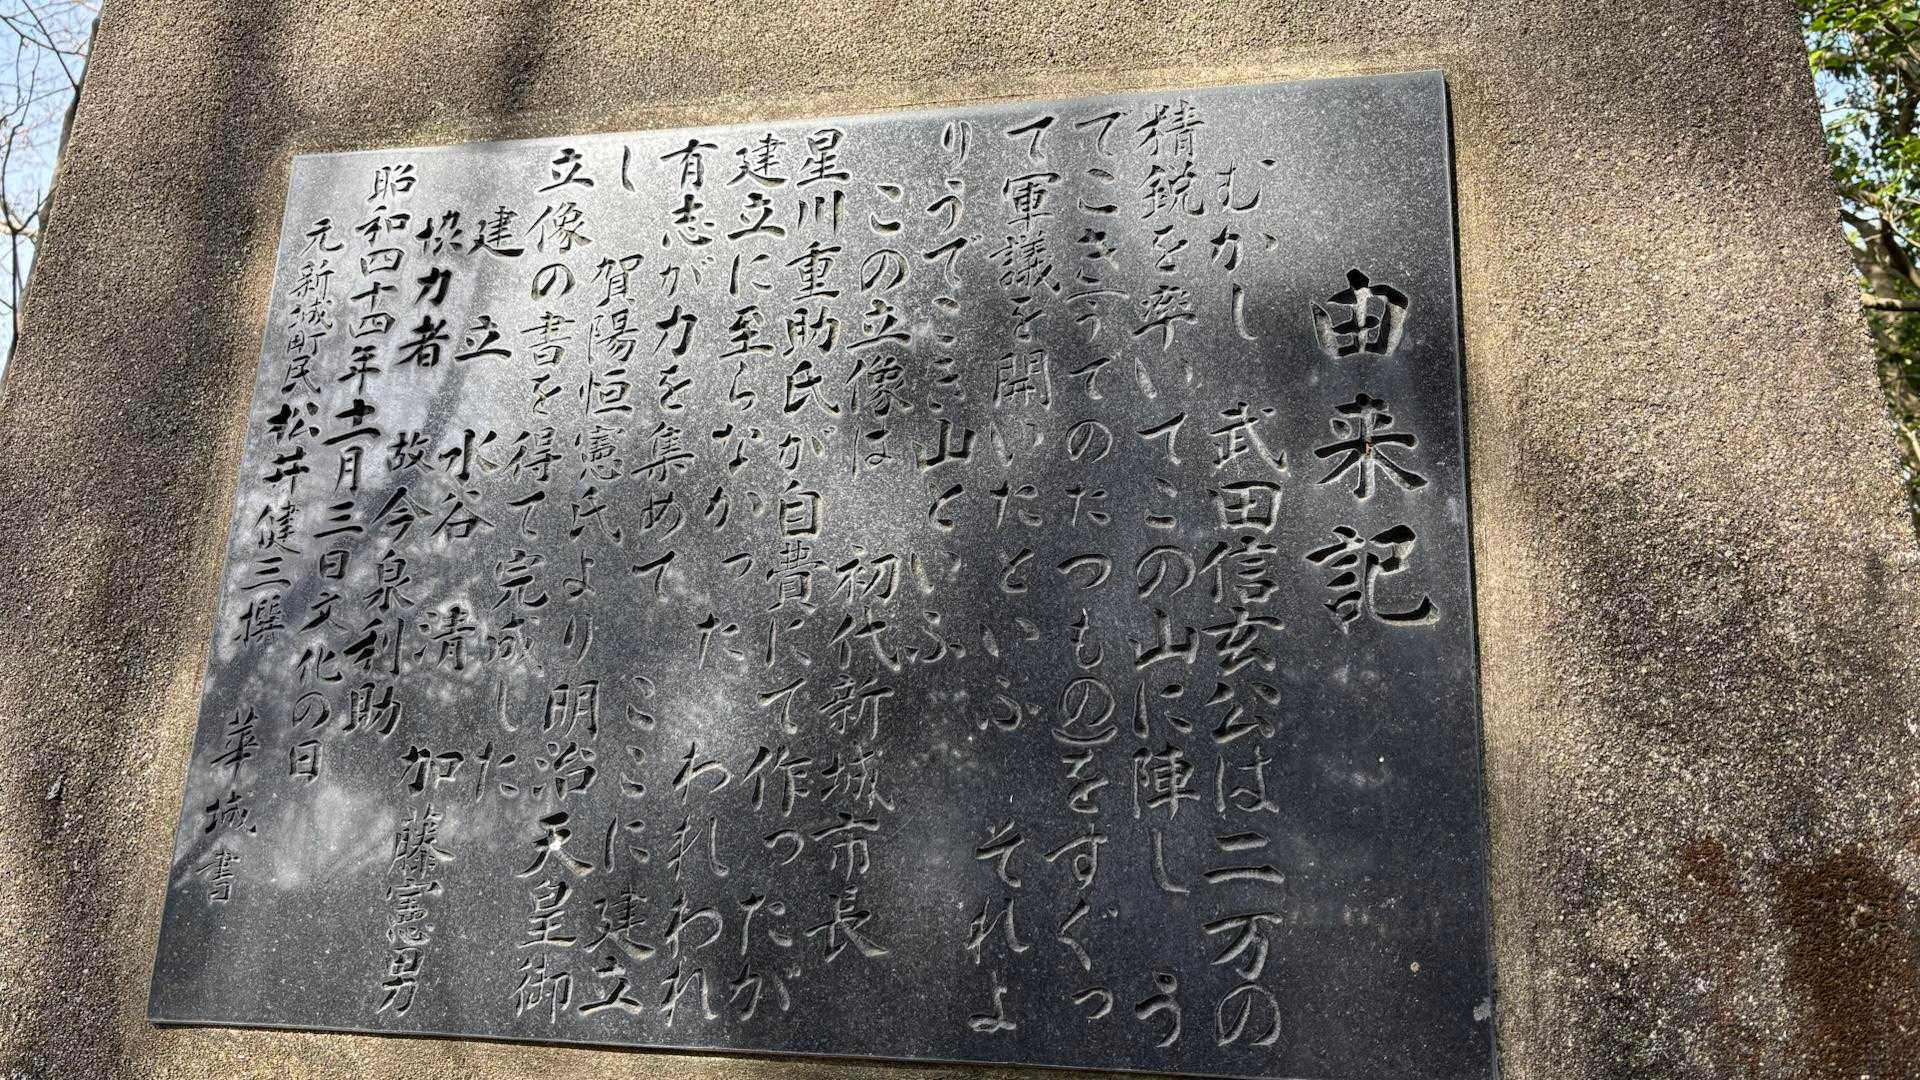 由来記
むかし 武田信玄公は二万の
精鋭を率いてこの山に陣し う
でこきうてのたつもの)をすぐっ
て軍議を開いたといふ それよ
りうでここき山といふ
この立像は 初代新城市長
星川重助氏が自費にて作ったが
建立に至らなかった われわれ
有志が力を集めて ここに建立
し 賀陽恒憲氏より明治天皇御
立像の書を得て完成した
建立 水谷 清 加藤憲男
協力者 故今泉利助
昭和四十四年十一月三日文化の日
元新城町民 松井健三撰 華城書